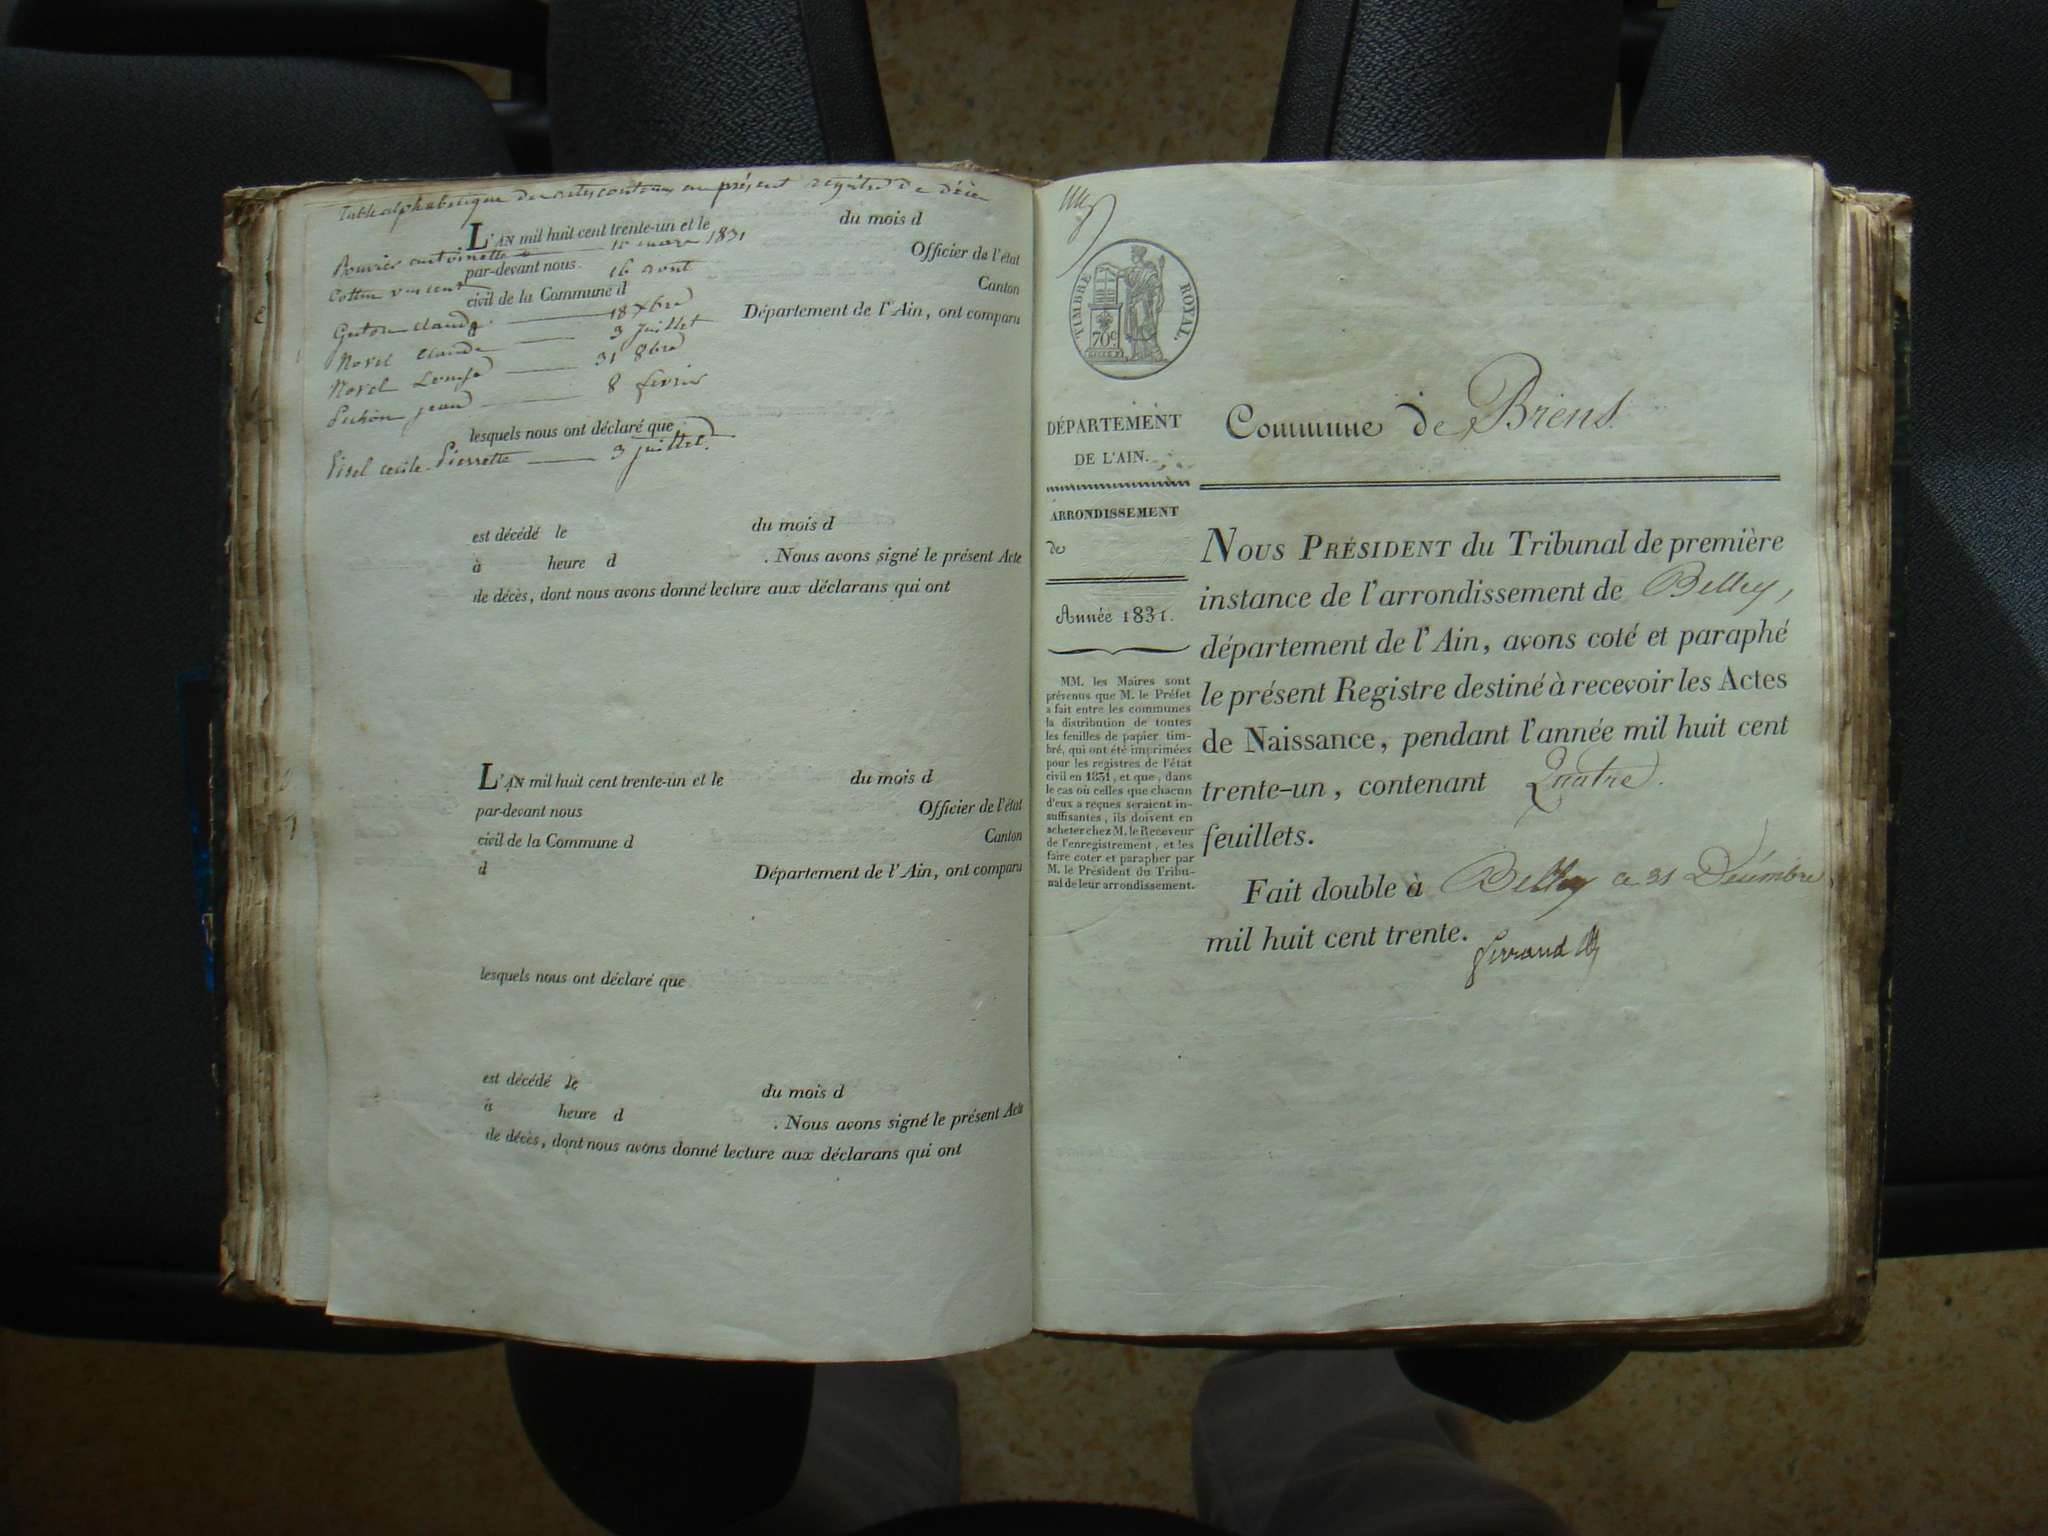 Table alphabetique des actes contenus au présent registre de décè
L'AN mil huit cent trente-un et le du mois d
Bouvier antoinette 10 mars 1831
par-devant nous Officier de l'état
Cottin vincent 16 aout
civil de la Commune d Canton
Guton claude 18 Xbre
Département de l'Ain, ont comparu
Morel claude 3 juillet
Morel Louise 31 8bre
Pichon jean 8 fevrier
lesquels nous ont déclaré que
Pisel cecile Pierrette 3 juillet.
est décédé le du mois d
à heure d . Nous avons signé le présent Acte
de décès, dont nous avons donné lecture aux déclarans qui ont
L'AN mil huit cent trente-un et le du mois d
par-devant nous Officier de l'état
civil de la Commune d Canton
d Département de l'Ain, ont comparu
lesquels nous ont déclaré que
est décédé le du mois d
à heure d . Nous avons signé le présent Acte
de décès, dont nous avons donné lecture aux déclarans qui ont
TIMBRE ROYAL.
70c
DÉPARTEMENT
DE L'AIN.
ARRONDISSEMENT
de
Année 1831.
MM. les Maires sont
prévenus que M. le Préfet
a fait entre les communes
la distribution de toutes
les feuilles de papier tim-
bré, qui ont été imprimées
pour les registres de l'état
civil en 1831, et que, dans
le cas où celles que chacun
d'eux a reçues seraient in-
suffisantes, ils doivent en
acheter chez M. le Receveur
de l'enregistrement, et les
faire coter et parapher par
M. le Président du Tribu-
nal de leur arrondissement.
Commune de Brens
NOUS PRÉSIDENT du Tribunal de première
instance de l'arrondissement de Belley,
département de l'Ain, avons coté et paraphé
le présent Registre destiné à recevoir les Actes
de Naissance, pendant l'année mil huit cent
trente-un, contenant Quatre.
feuillets.
Fait double à Belley ce 31 Décembre
mil huit cent trente.